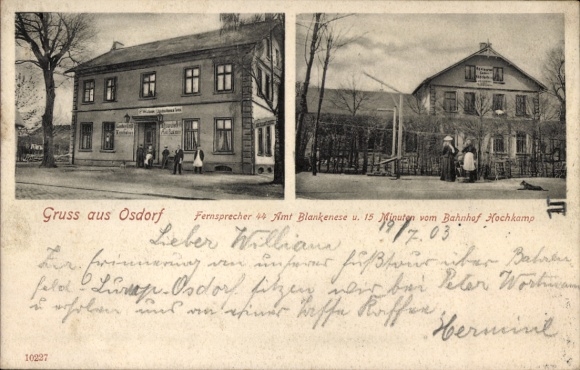 Gruss aus Osdorf
Fernsprecher 44 Amt Blankenese u. 15 Minuten vom Bahnhof Hochkamp
19/7 03
Lieber William
Zur Erinnerung an unsere Fußtour über Bahren
feld - Lurup - Osdorf, sitzen wir bei Peter Wortmann
u erholen uns an einer Tasse Kaffee
Hermine
10227